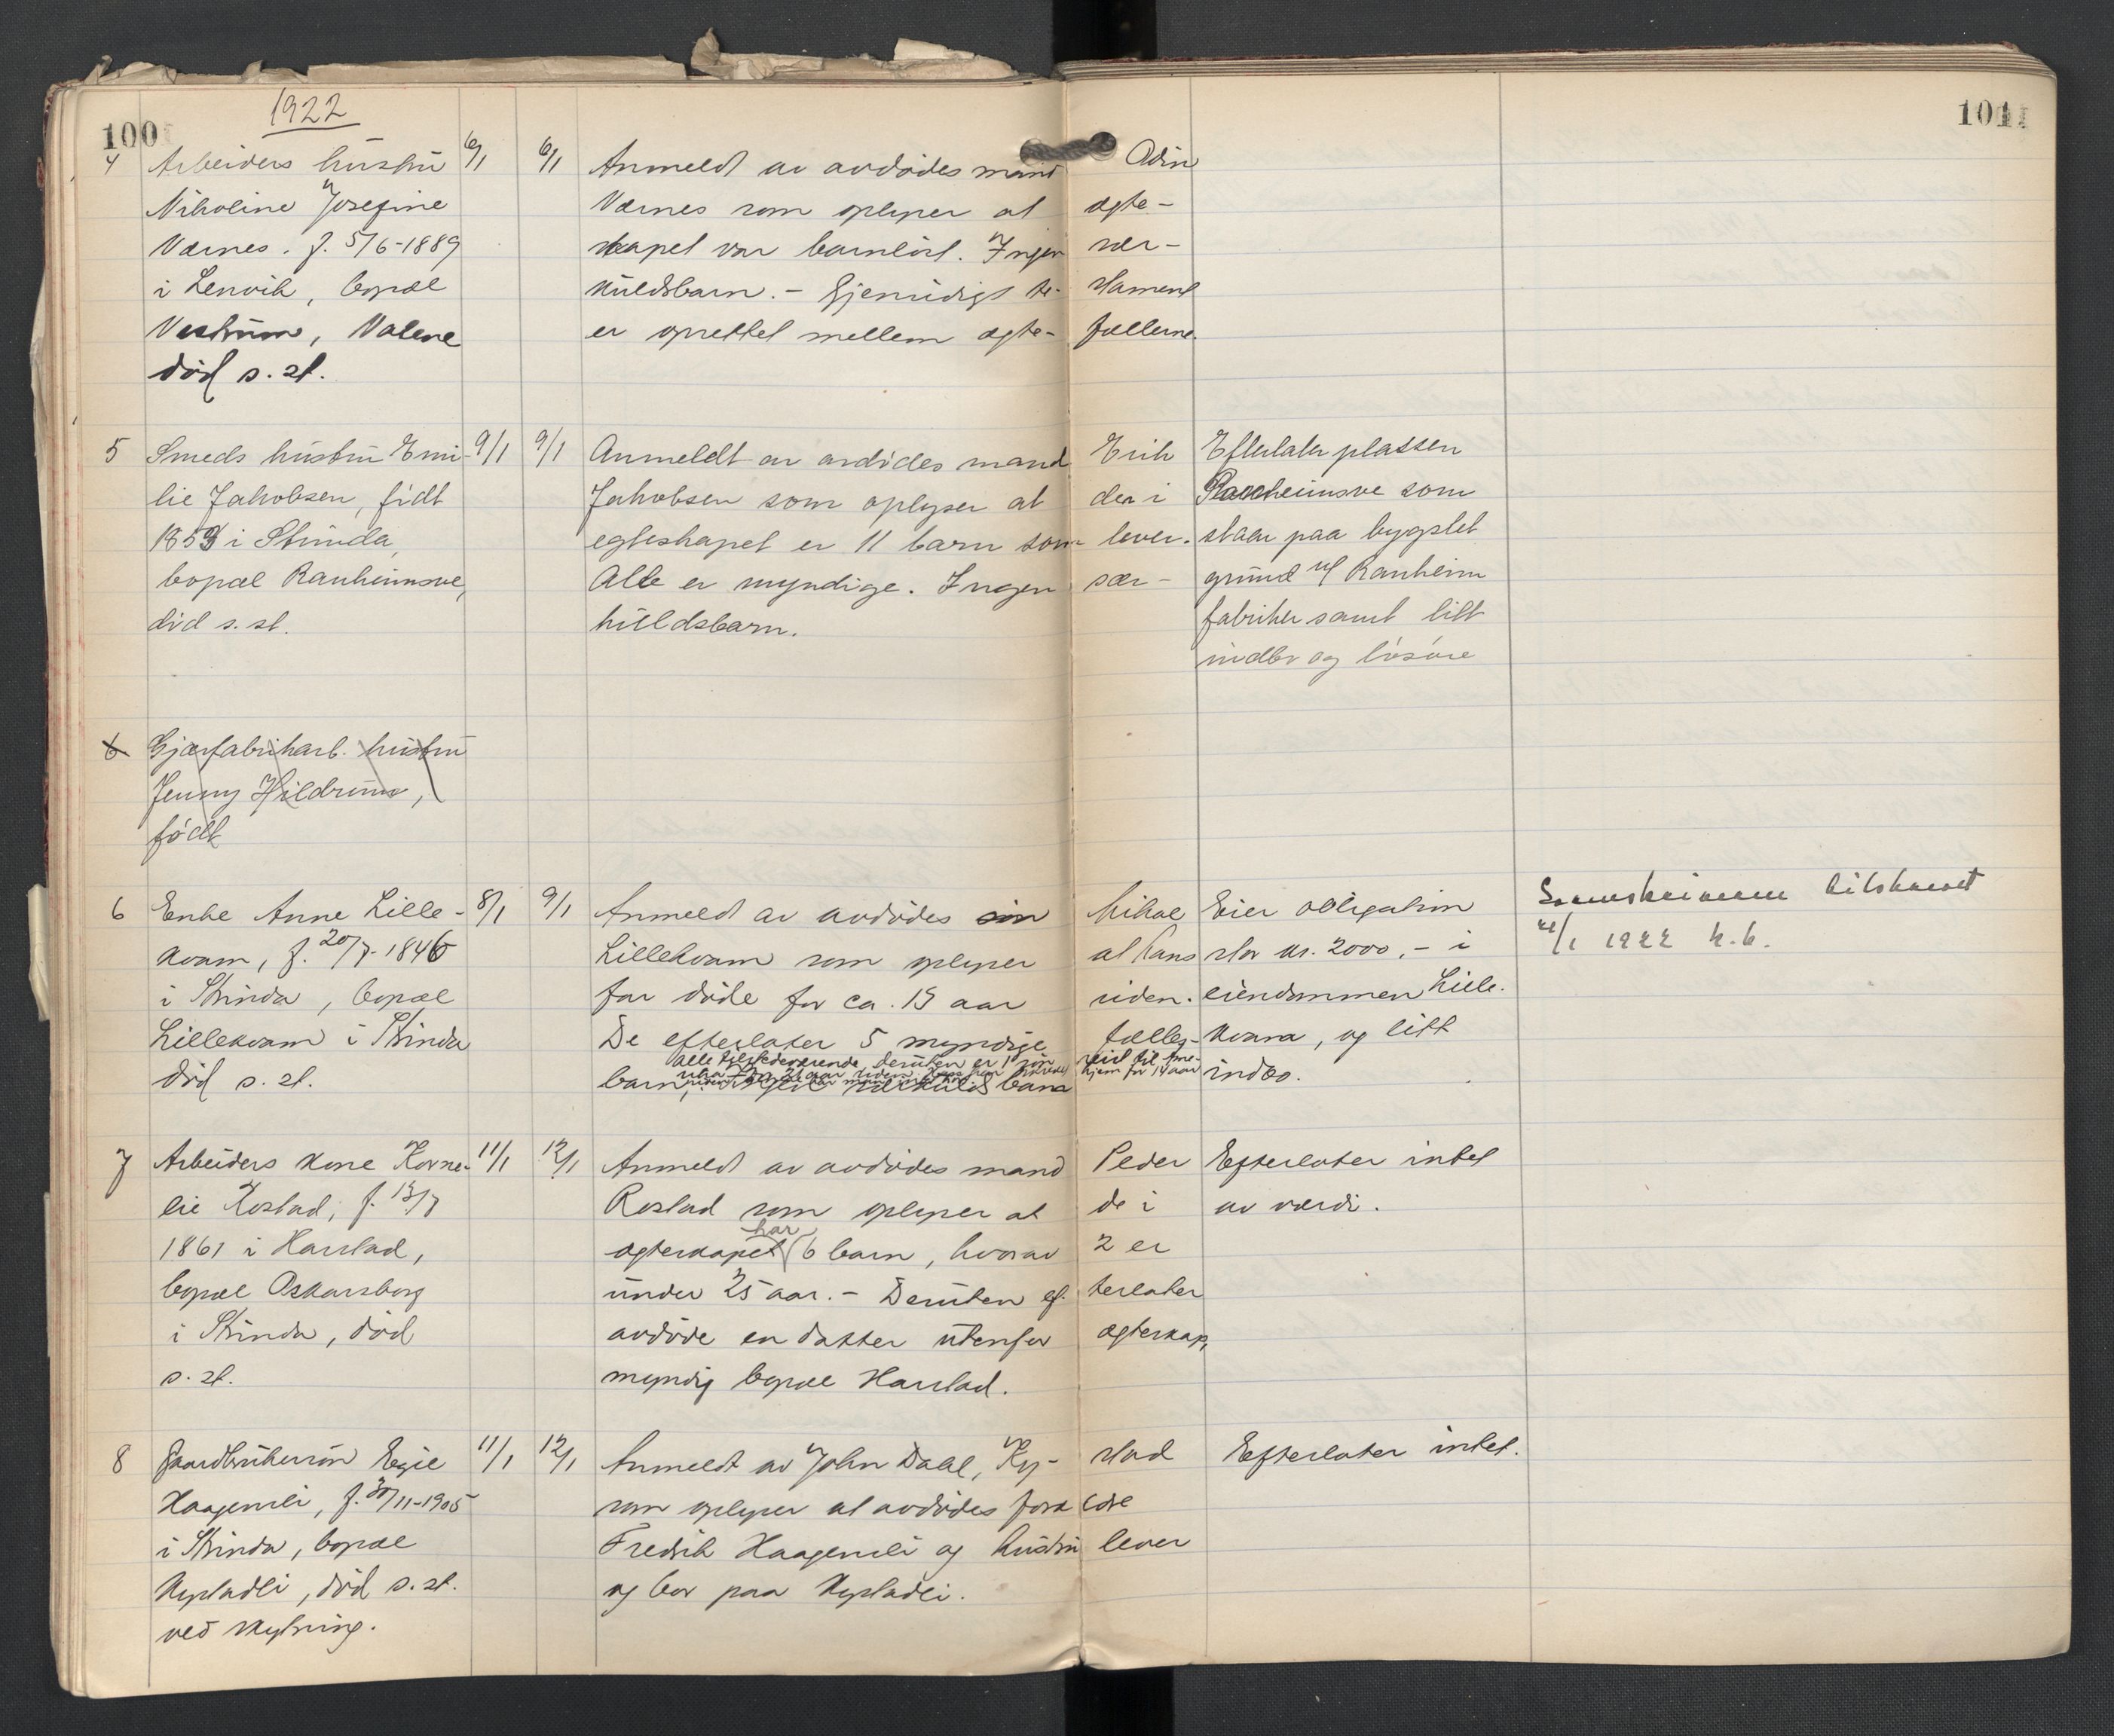 1922
100
101
4 Arbeiders hustru 6/1 6/1 Anmeldt av avdødes mand Odin
Nikoline Josefine Værnes som oplyser at ægte-
Værnes. f. 5/6-1889 skapet var barnløst. Ingen sær-
i Lenvik, bopæl kuldsbarn. - Gjensidigt te- stament
Vestrum, Valene er oprettet mellem ægte- fællerne.
død s. st.
5 Smeds hustru Emi- 9/1 9/1 Anmeldt av avdødes mand Erik Efterlater plassen
lie Jakobsen, født Jakobsen som oplyser at der i Ranheimsve som
1859 i Strinda, egteskapet er 11 barn som lever. staar paa bygslet
bopæl Ranheimsve, Alle er myndige. Ingen sær- grund u/ Ranheim
død s. st. kuldsbarn. fabriker samt litt
indbo og løsøre
6 Gjærfabrikarb. hustru
Jenny Hildrum,
født
6 Enke Anne Lille- 8/1 9/1 Anmeldt av avdødes søn Mikal Eier obligation
kvam, f. 20/7-1846 Lillekvam som oplyser at hans stor kr. 2000,- i
i Strinda, bopæl far døde for ca. 15 aar siden. eiendommen Lille-
Lillekvam i Strinda De efterlater 5 myndige fælles- kvam, og litt
død s. st. barn, alle tilstedeværende. Desuten er 1 søn reist til Ame-
indbo.
1922
7 Arbeiders kone Korne- 11/1 12/1 Anmeldt av avdødes mand Peder Efterlater intet
lie Rostad, f. 13/7 Rostad som oplyser at de i av værdi.
1861 i Harstad, ægteskapet har 6 barn, hvorav 2 er
bopæl Oskarsborg under 25 aar. - Desuten ef- terlater
i Strinda, død avdøde en datter utenfor ægteskap,
s. st. myndig bopæl Harstad.
8 Gaardbrukersøn Egil 11/1 12/1 Anmeldt av John Dahl, Ky- stad Efterlater intet.
Haagenli, f. 30/11-1905 som oplyser at avdødes foræ ldre
i Strinda, bopæl Fredrik Haagenli og hustru lever
Kystadli, død s. st. og bor paa Kystadli.
ved skytning.